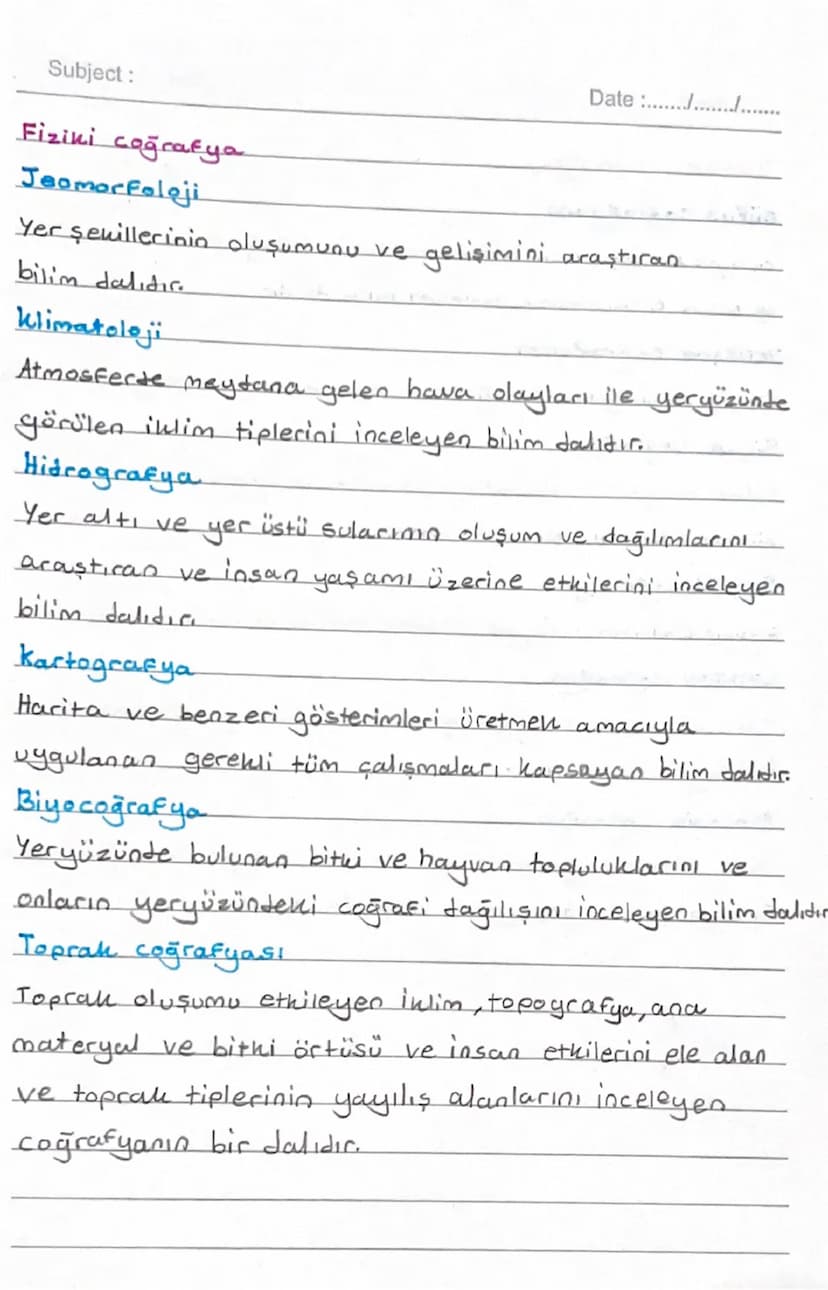 Subject :
Date :....../......./.......
Fiziki coğrafya
Jeomorfoloji
Yer şekillerinin oluşumunu ve gelişimini araştıran
bilim dalıdır.
Klimatoloji
Atmosferde meydana gelen hava olayları ile yeryüzünde
görülen iklim tiplerini inceleyen bilim dalıdır.
Hidrografya
Yer altı ve yer üstü sularının oluşum ve dağılımlarını
araştıran ve insan yaşamı üzerine etkilerini inceleyen
bilim dalıdır.
Kartografya
Harita ve benzeri gösterimleri üretmek amacıyla
uygulanan gerekli tüm çalışmaları kapsayan bilim dalıdır.
Biyocoğrafya
Yeryüzünde bulunan bitki ve hayvan topluluklarını ve
onların yeryüzündeki coğrafi dağılışını inceleyen bilim dalıdır
Toprak coğrafyası
Toprak oluşumu etkileyen iklim, topografya, ana
materyal ve bitki örtüsü ve insan etkilerini ele alan
ve toprak tiplerinin yayılış alanlarını inceleyen
coğrafyanın bir dalıdır.